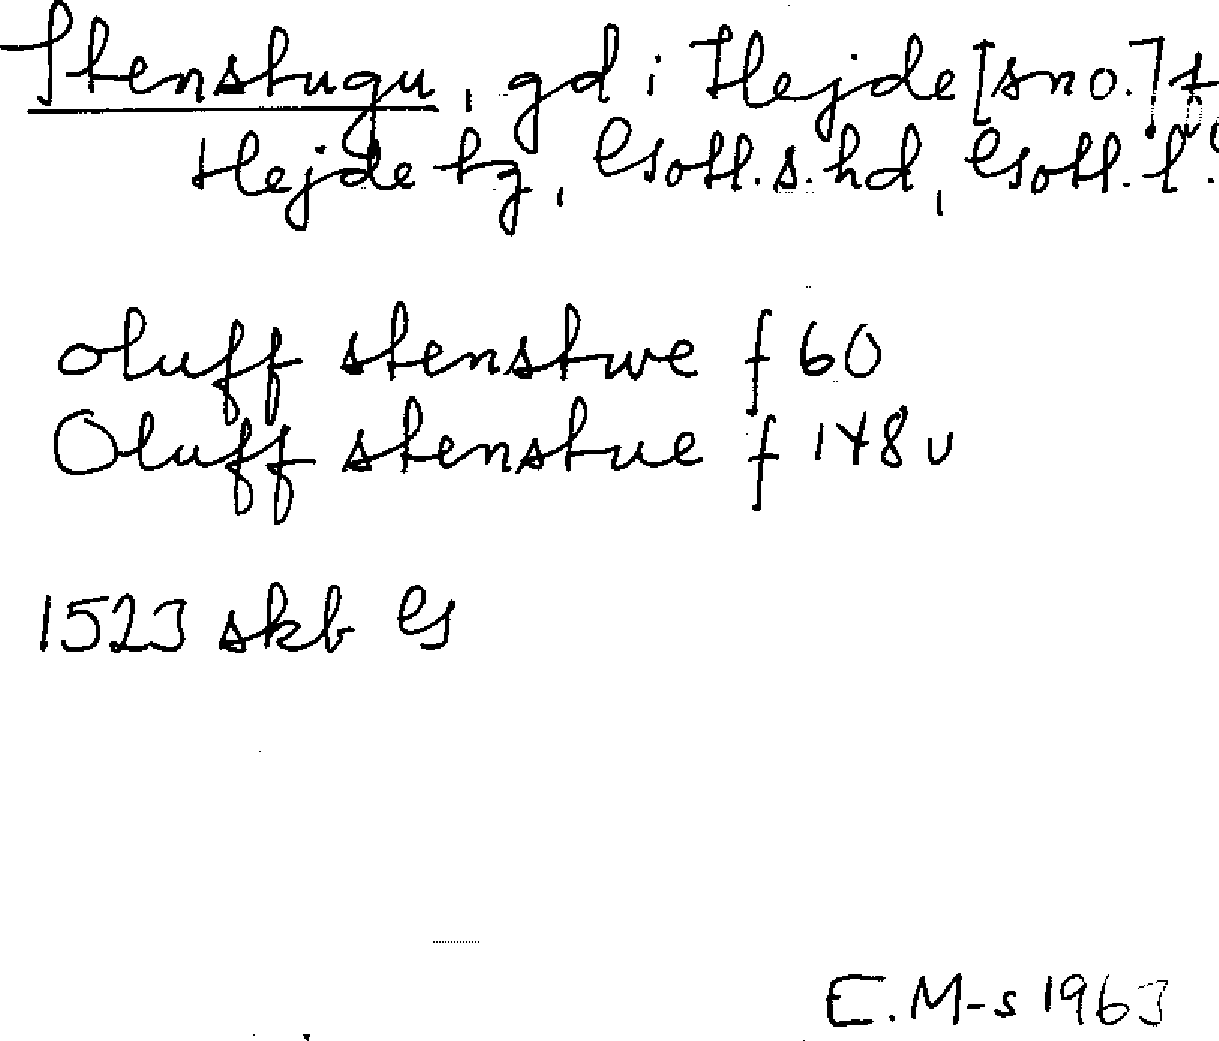 Stenstugu, gd i Hejde [sn o.]
Hejde tg, Gotl. s. hd, Gotl. l.
oluff stenstwe f 60
Oluff stenstue f 148 v
1523 skb G
E. M-s 1963